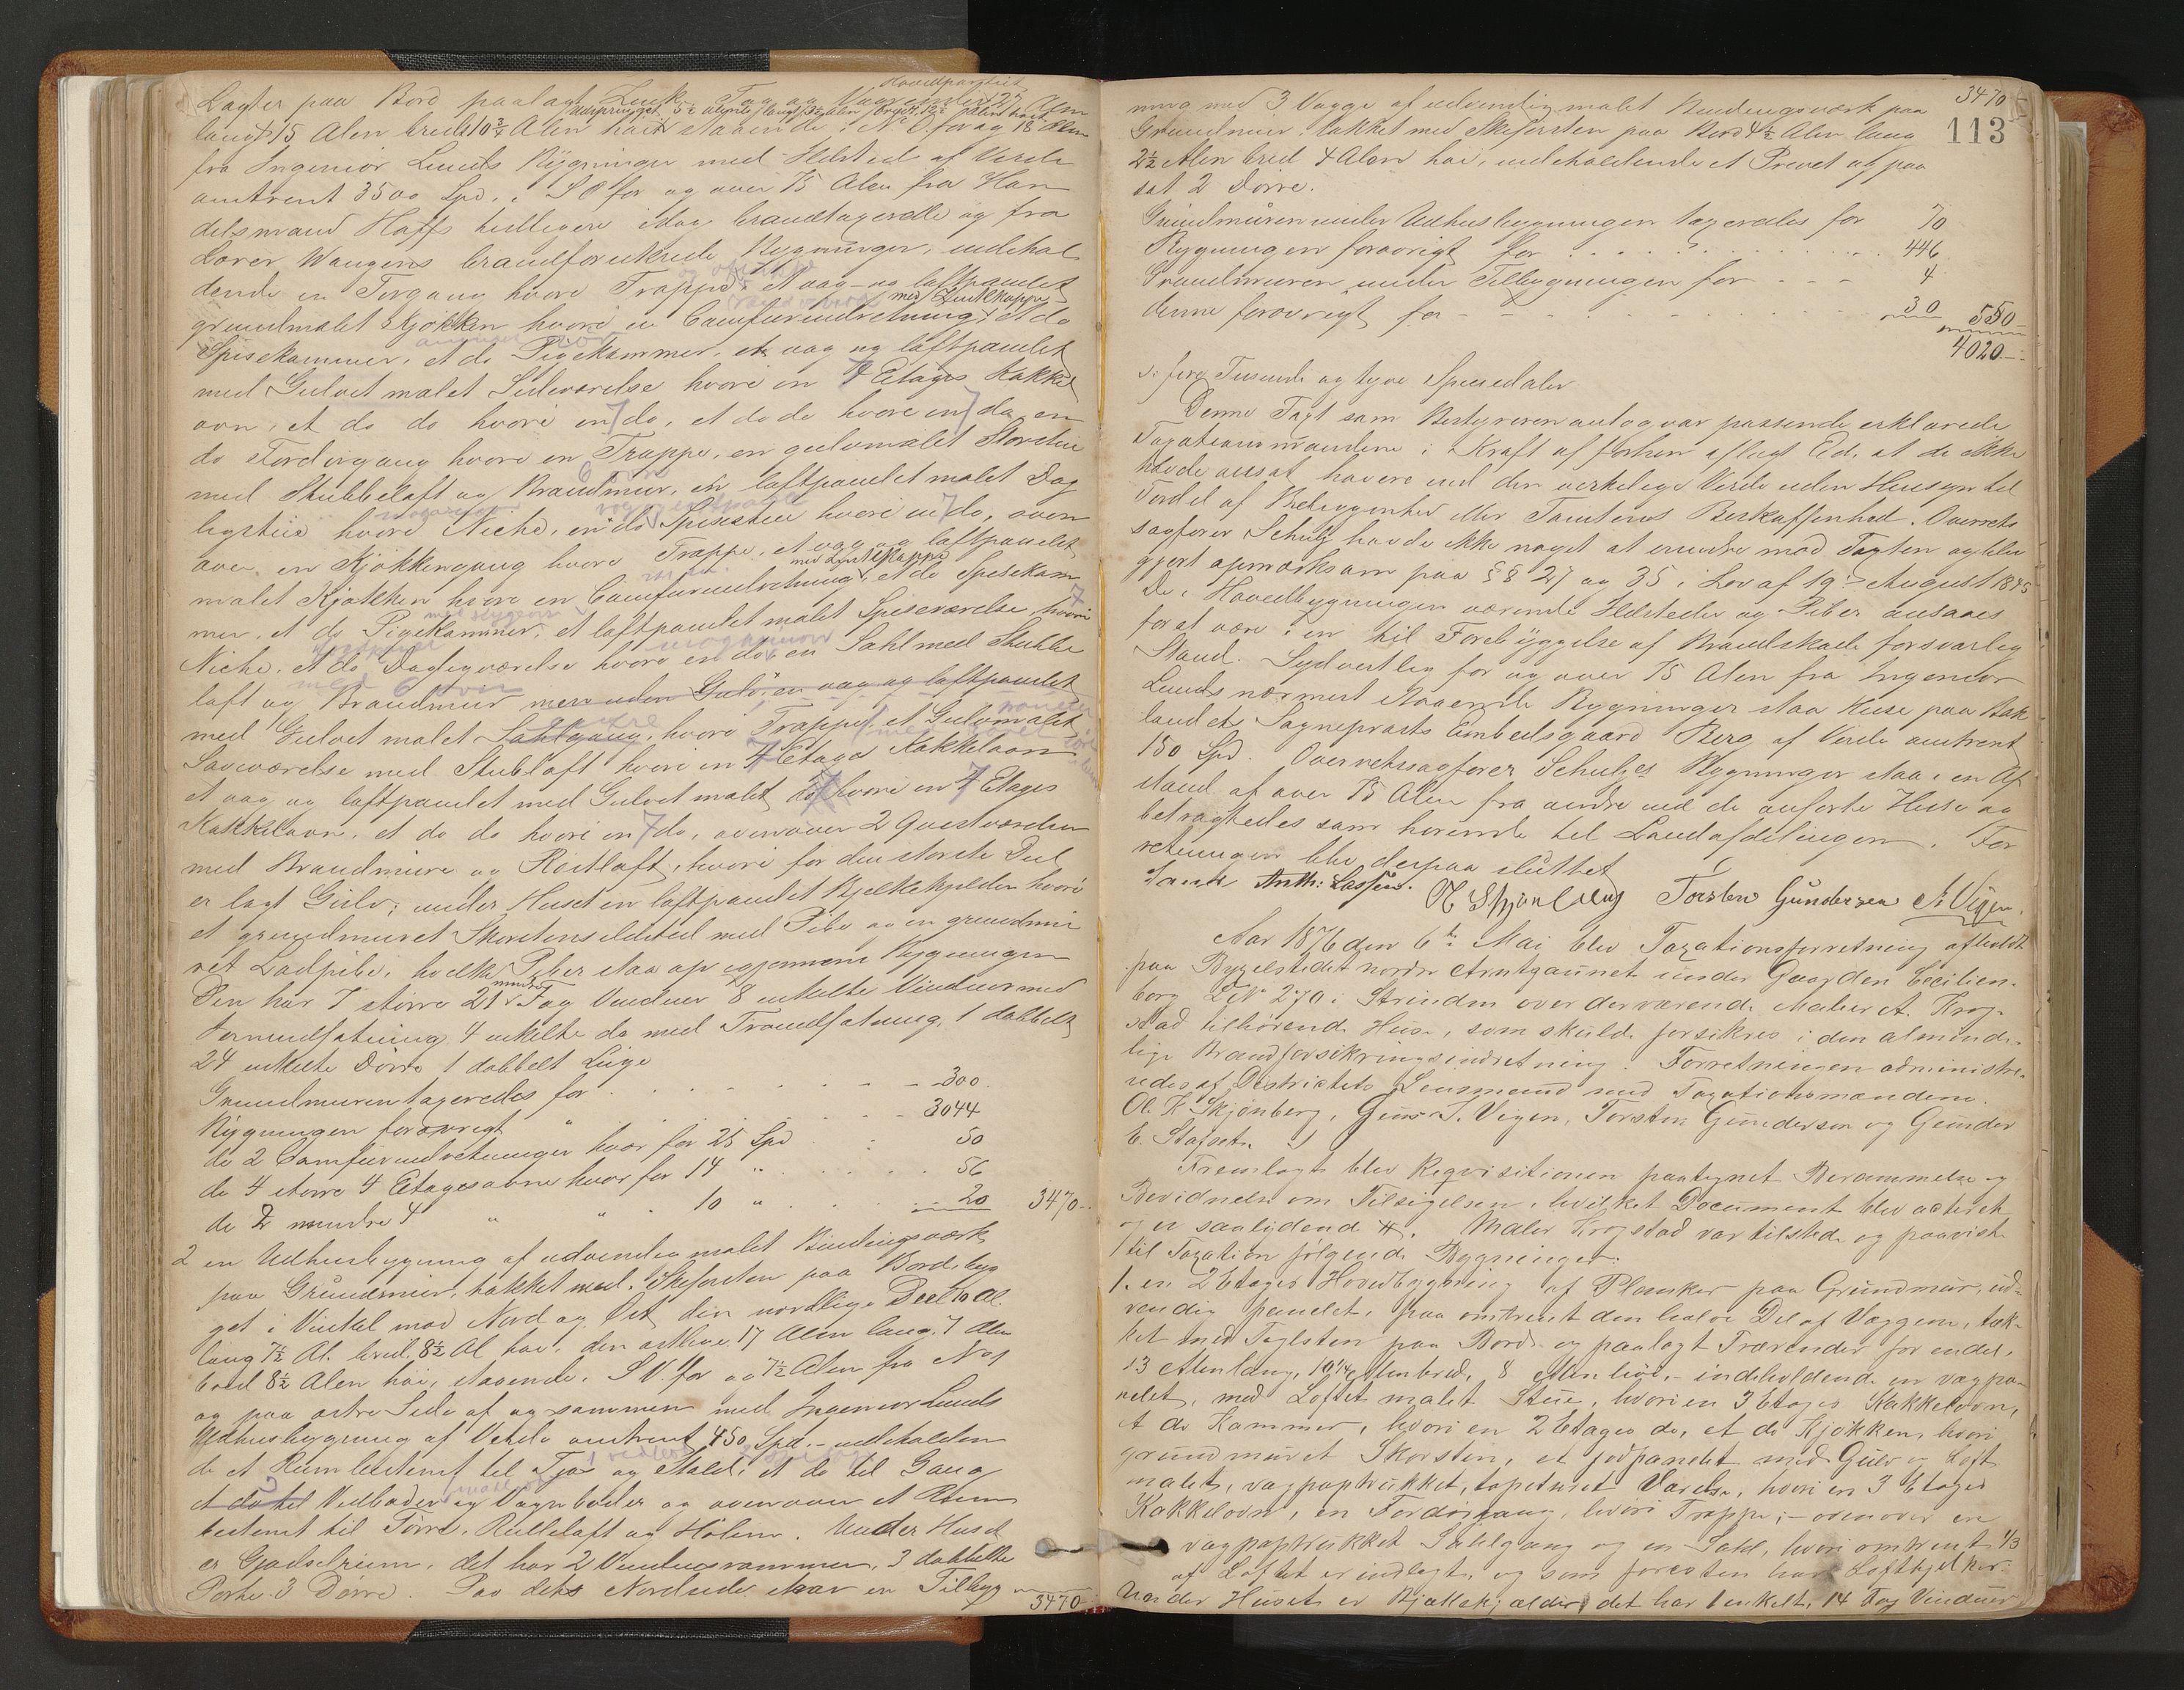 Hovedpartiet
Lagter paa Bord paalagt Zink, 27 Alen
Udspringet 5½ Alen langt 3½ Alen bredt 12½ Alen høit
langt 15 Alen bredt 10¾ Alen høit staaende i N. O. for og 18 Alen
fra Ingeniør Lunds Bygninger med Ildsted af Verdi
omtrent 3500 Spd., i S O for og over 75 Alen fra Han
delsmand Hoffs tidligere idag brandtaxerede og fra
Farver Wangens brandforsikrede Bygninger, indehol
dende en Forgang hvori Trappe, et væg- og loftpanelet
med Zinkkappe
grundmalet Kjøkken hvori en Comfurindretning, et do
Spisekammer, et do Pigekammer, et væg og loftpanelet
med Gulvet malet Sideværelse hvori en 4 Etages Kakkel
ovn, et do do hvori en do, et do do hvori en do, en
do Fordørgang hvori en Trappe, en gulvmalet Storstue
med Stubbeloft og Brandmur, en loftpanelet malet Dag
ligstue hvori Niche, en do Spisestue hvori en do, oven
over en Kjøkkengang hvori Trappe, et væg og loftpanelet
med Zinkkappe
malet Kjøkken hvori en Comfurindretning, et do Spisekam
mer, et do Pigekammer, et loftpanelet malet Spiseværelse, hvori
Niche, et do Dagligværelse hvori en do, en Sahl med Stubbe
loft og Brandmur men uden Gulv, en væg og loftpanelet
med Gulvet malet Sahlgang, hvori Trappe, et Gulvmalet
Soveværelse med Stubloft hvori en 4 Etages Kakkelovn
et væg og loftpanelet med Gulvet malet do hvori en 4 Etages
Kakkelovn, et do do hvori en do, ovenover 2 Qvistværelser
med Brandmure og Røstloft, hvori for den største Deel
er lagt Gulv; under Huset en loftpanelet Bjelkekjelder hvori
et grundmuret Skorstensildsted med Pibe og en grundmu
ret Lødpibe, hvilke Piber staa op igjennem Bygningen
Den har 7 større 21 mindre Fag Vinduer 8 enkelte Vinduer med
Jernindfatning 4 enkelte do med Træindfatning, 1 dobbelt
24 enkelte Dørre 1 dobbelt Luge
Grundmuren taxeredes for . . . - - 300.
Bygningen forøvrigt " . . . - 3044
de 2 Comfurindretninger hver for 25 Spd . . 50
de 4 større 4 Etagesovne hver for 14 " . . . 56
de 2 mindre 4 " " . 10 " . . . 20 3470-
2 en Udhusbygning af udvendig malet Bindingsværk
paa Grundmuur, tækket med Skifersten paa Bord byg
get i Vinkel mod Nord og Øst, den nordlige Deel 10 Al.
lang 7½ Al. bred, 8½ Al høi, den østlige 17 Alen lang, 7 Alen
bred 8½ Alen høi, staaende i S V. for og 7½ Alen fra No 1
og paa østre Side af og sammen med Ingeniør Lunds
Udhusbygning af Verdi omtrent 450 Spd. - indeholden
de et Rum bestemt til Fjøs og Stald, et do til Gang
et do til Vedboder og Vognboder og ovenover et Rum
bestemt til Tørre, Rulleloft og Høhrum. Under Huset
er Gjødselrum, det har 2 Vinduesrammer, 3 dobbelte
Porte 3 Dørre. Paa dets Nordside staar en Tilbyg
3470
3470
113
ning med 3 Vægge af udvendig malet Bindingsværk paa
Grundmuur, tækket med Skifersten paa Bord 4½ Alen lang
2½ Alen bred 4 Alen høi, indeholdende et Privet og paa
sat 2 Dørre.
Grundmuren under Udhusbygningen taxeredes for 70
Bygningen forøvrigt for . . . . . . . 446
Grundmuren under Tilbygningen for - - - 4
denne forøvrigt for - - . . . . . 30 550-
4020-
S: fire Tusinde og tyve Speciedaler
Denne Taxt som Bestyreren antog var passende erklærede
Taxationsmændene i Kraft af forhen aflagt Eed, at de ikke
havde ansat høiere end den virkelige Verdi uden Hensyn til
Fordel af Beliggenhed eller Tomtens Beskaffenhed. Overrets
sagfører Schulz havde ikke noget at erindre mod Taxten og blev
gjort opmærksom paa §§ 27 og 35 i Lov af 19de August 1845
De i Hovedbygningen værende Ildsteder og Piber ansaaes
for at være i en til Forebyggelse af Brandskade forsvarlig
Stand. Sydvestlig for og over 75 Alen fra Ingeniør
Lunds nærmest staaende Bygninger staa Huse paa Bak
landets Sogneprests Embedsgaard Berg af Verdi omtrent
150 Spd. Overretssagfører Schulzes Bygninger staa i en Af
stand af over 75 Alen fra andre end de anførte Huse og
betragtedes som hørende til Landafdelingen. For
retningen blev derpaa sluttet
Anth: Lassen. O K Skjønberg Torsten Gundersen S. Vigen.
Aar 1876 den 6te Mai blev Taxationsforretning afholdt
paa Bygselstedet nordre Arntgaunet under Gaarden Cecilien-
borg L No 270 i Strinden over derværende Maler A. Krog-
stad tilhørende Huse, som skulde forsikres i den alminde-
lige Brandforsikringsindretning. Forretningen administre-
redes af Districtets Lensmand med Taxationsmændene
Ol. K Skjønberg, Gunr. S. Vigen, Torsten Gundersen og Gunder
E. Stafset.
Fremlagt blev Reqvisitionen paategnet Berammelse og
Bevidnelse om Tilsigelsen, hvilket Document blev acteret
og er saalydende #. Maler Krogstad var tilstede og paaviste
til Taxation følgende Bygninger:
1. en 2 Etages Hovedbygning af Planker paa Grundmur, ud-
vendig panelet, paa omtrent den halve Del af Væggene, tæk-
ket med Taglsten paa Bord og paalagt Trærender for endel,
13 Alen lang, 10¼ Alen bred, 8 Alen høi, - indeholdende en vægpa-
nelet, med Loftet malet Stue, hvori en 3 Etages Kakkelovn,
et do Kammer, hvori en 2 Etages do, et do Kjøkken, hvori
grundmuret Skorsten, et fodpanelet med Gulv og Loft
malet, vægpaptrukket, tapetseret Værelse, hvori en 3 Etages
Kakkelovn, en Fordørgang, hvori Trappe; - ovenover en
vægpaptrukket Sahlgang og en Sahl, hvori omtrent 1/3
af Loftet er indlagt, og som foresten har Loftbjelker.
Under Huset er Bjælkekjælder, det har 1 enkelt, 14 Fag Vinduer